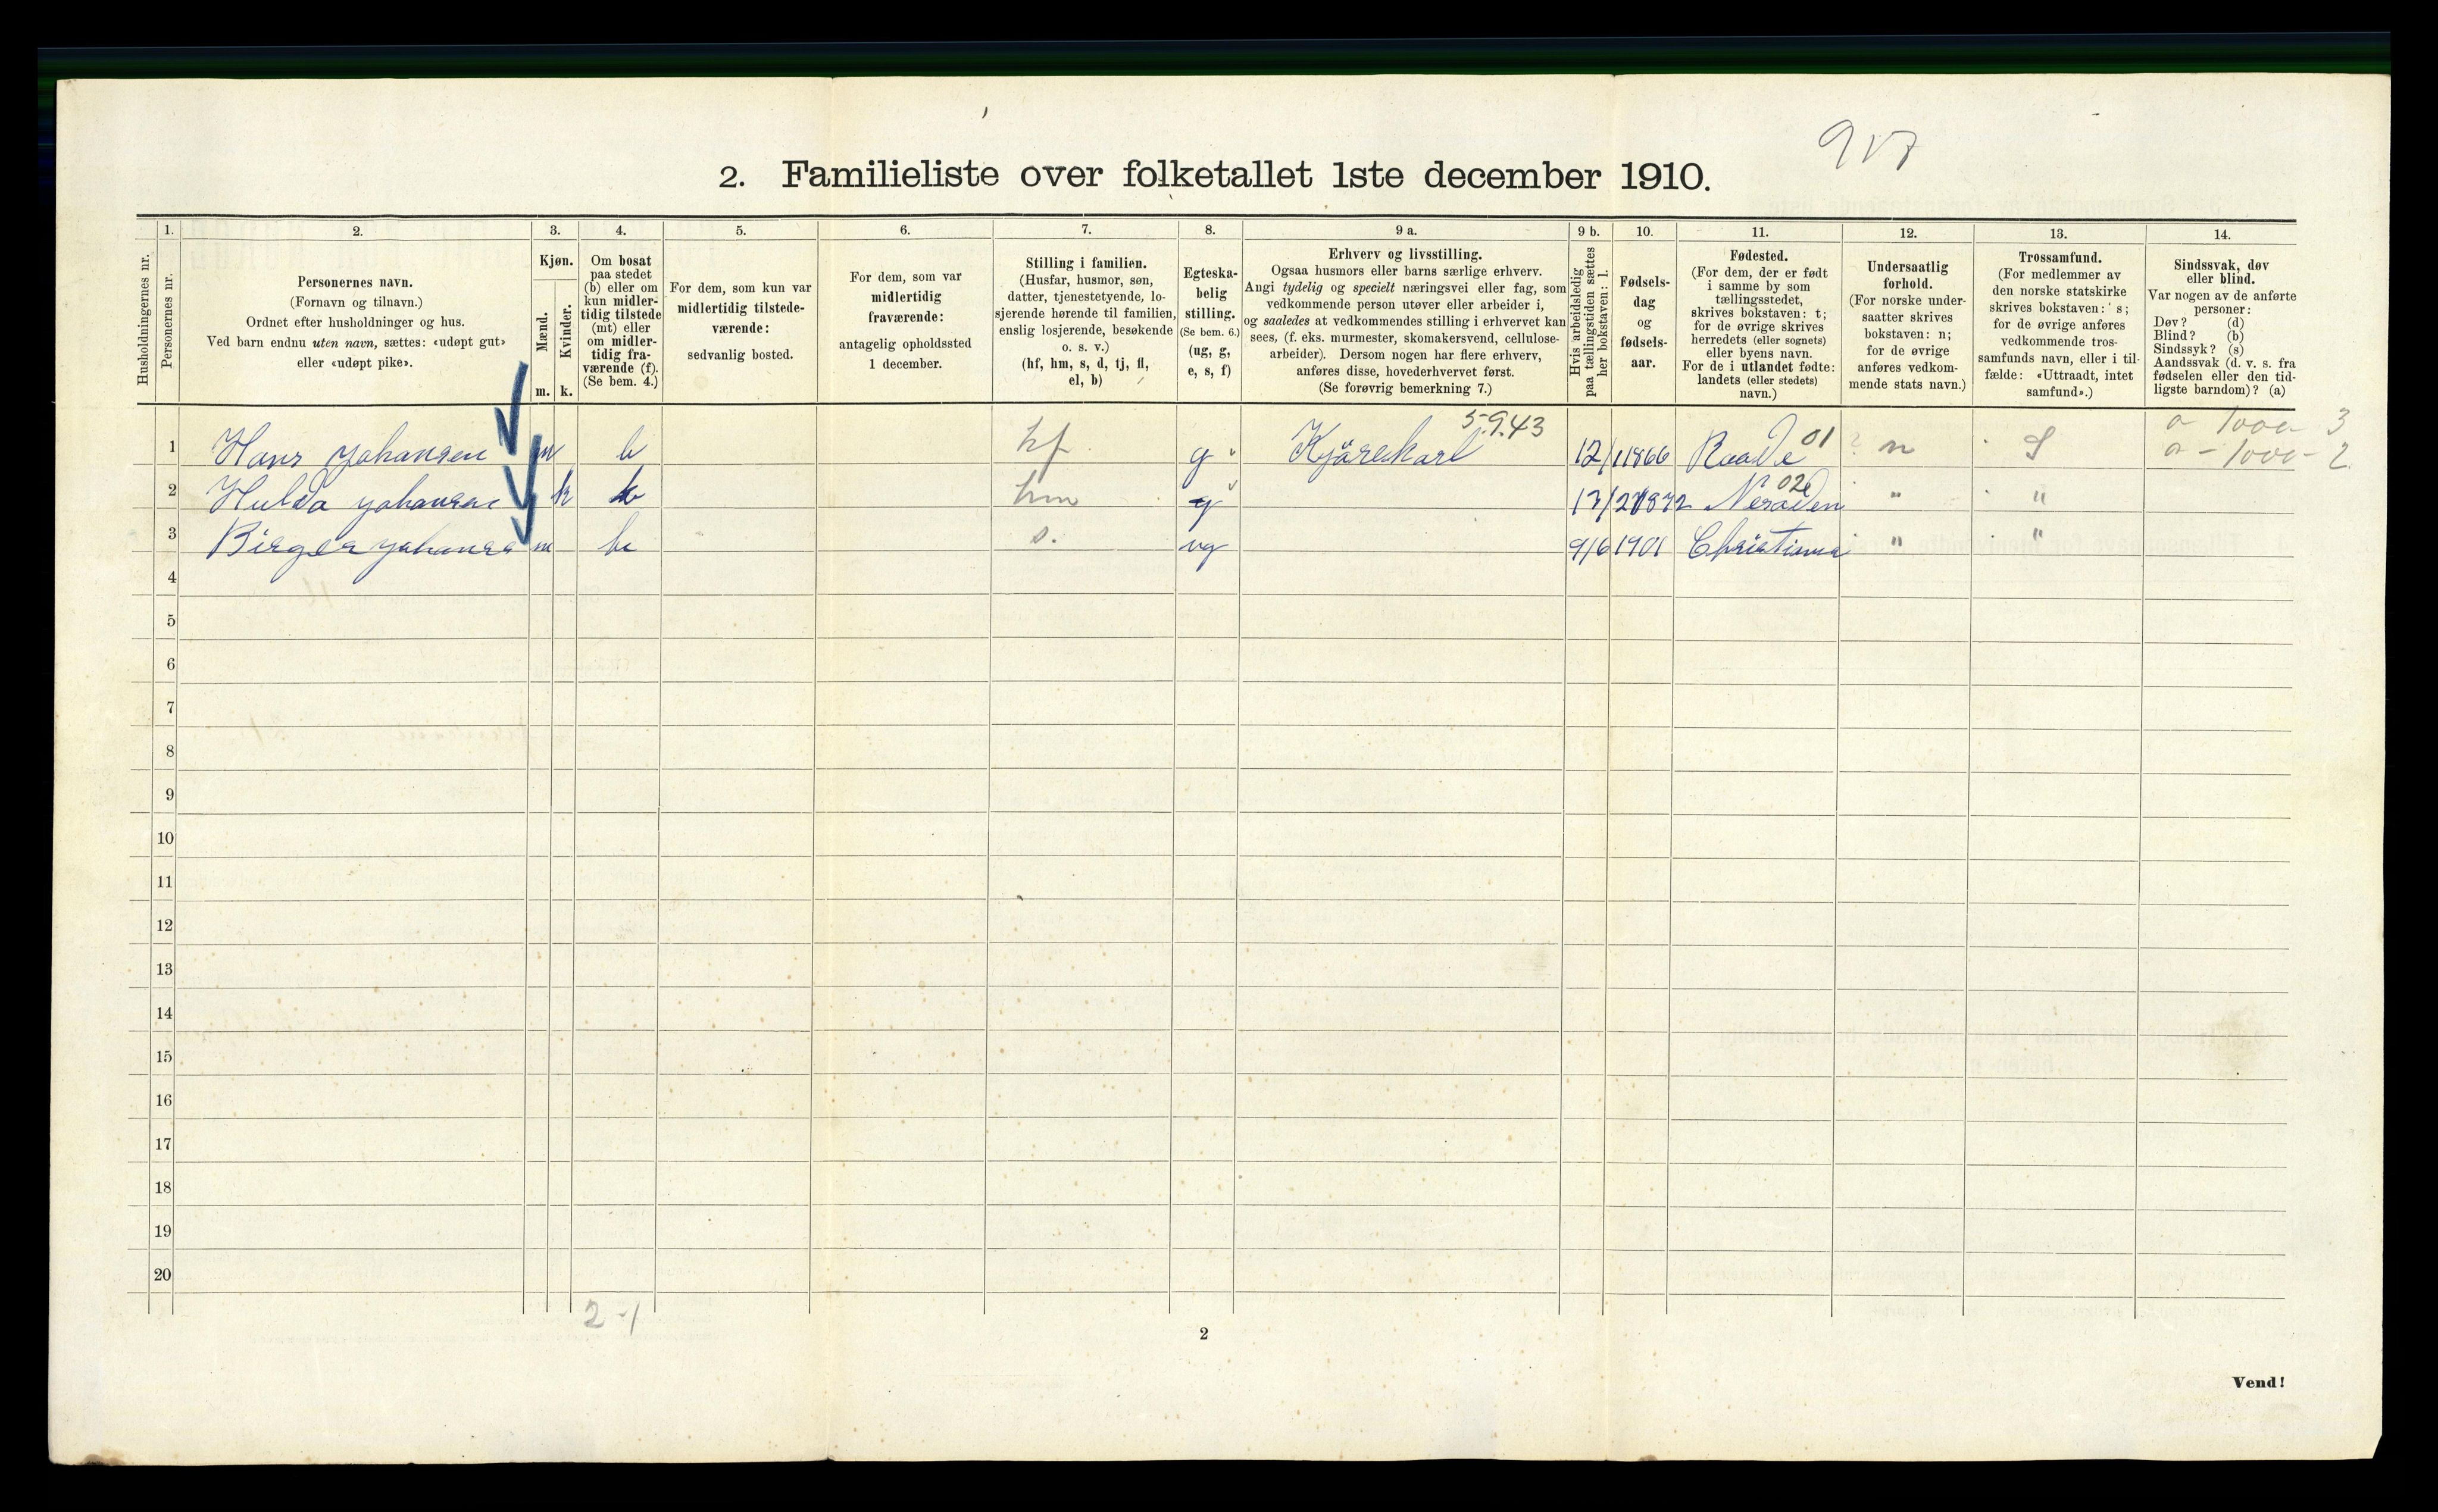 917
2. Familieliste over folketallet 1ste december 1910.
Husholdningernes nr.
1.
Personernes nr.
2.
Personernes navn.
(Fornavn og tilnavn.)
Ordnet efter husholdninger og hus.
Ved barn endnu uten navn, sættes: «udøpt gut»
eller «udøpt pike».
3.
Kjøn.
Mænd.
Kvinder.
m. k.
4.
Om bosat
paa stedet
(b) eller om
kun midler-
tidig tilstede
(mt) eller
om midler-
tidig fra-
værende (f).
(Se bem. 4.)
5.
For dem, som kun var
midlertidig tilstede-
værende:
sedvanlig bosted.
6.
For dem, som var
midlertidig
fraværende:
antagelig opholdssted
1 december.
7.
Stilling i familien.
(Husfar, husmor, søn,
datter, tjenestetyende, lo-
sjerende hørende til familien,
enslig losjerende, besøkende
o. s. v.)
(hf, hm, s, d, tj, fl,
el, b)
8.
Egteska-
belig
stilling.
(Se bem. 6.)
(ug, g,
e, s, f)
9 a.
Erhverv og livsstilling.
Ogsaa husmors eller barns særlige erhverv.
Angi tydelig og specielt næringsvei eller fag, som
vedkommende person utøver eller arbeider i,
og saaledes at vedkommendes stilling i erhvervet kan
sees, (f. eks. murmester, skomakersvend, cellulose-
arbeider). Dersom nogen har flere erhverv,
anføres disse, hovederhvervet først.
(Se forøvrig bemerkning 7.)
9 b.
Hvis arbeidsledig
paa tællingstiden sættes
her bokstaven: l.
10.
Fødsels-
dag
og
fødsels-
aar.
11.
Fødested.
(For dem, der er født
i samme by som
tællingsstedet,
skrives bokstaven: t;
for de øvrige skrives
herredets (eller sognets)
eller byens navn.
For de i utlandet fødte:
landets (eller stedets)
navn.)
12.
Undersaatlig
forhold.
(For norske under-
saatter skrives
bokstaven: n;
for de øvrige
anføres vedkom-
mende stats navn.)
13.
Trossamfund.
(For medlemmer av
den norske statskirke
skrives bokstaven: s;
for de øvrige anføres
vedkommende tros-
samfunds navn, eller i til-
fælde: «Uttraadt, intet
samfund».)
14.
Sindssvak, døv
eller blind.
Var nogen av de anførte
personer:
Døv? (d)
Blind? (b)
Sindssyk? (s)
Aandssvak (d. v. s. fra
fødselen eller den tid-
ligste barndom)? (a)
5.9.43 01 a 1000 3
1 Hans Johansen m b hf g Kjørekarl 12/1 1866 Raade n S a - 1000 - 2
02
2 Hulda Johansen k b hm g 13/2 1872 Nesodden " "
3 Birger Johansen m b s. ug 9/6 1901 Christiania " "
4
5
6
7
8
9
10
11
12
13
14
15
16
17
18
19
20
2-1
2
Vend!